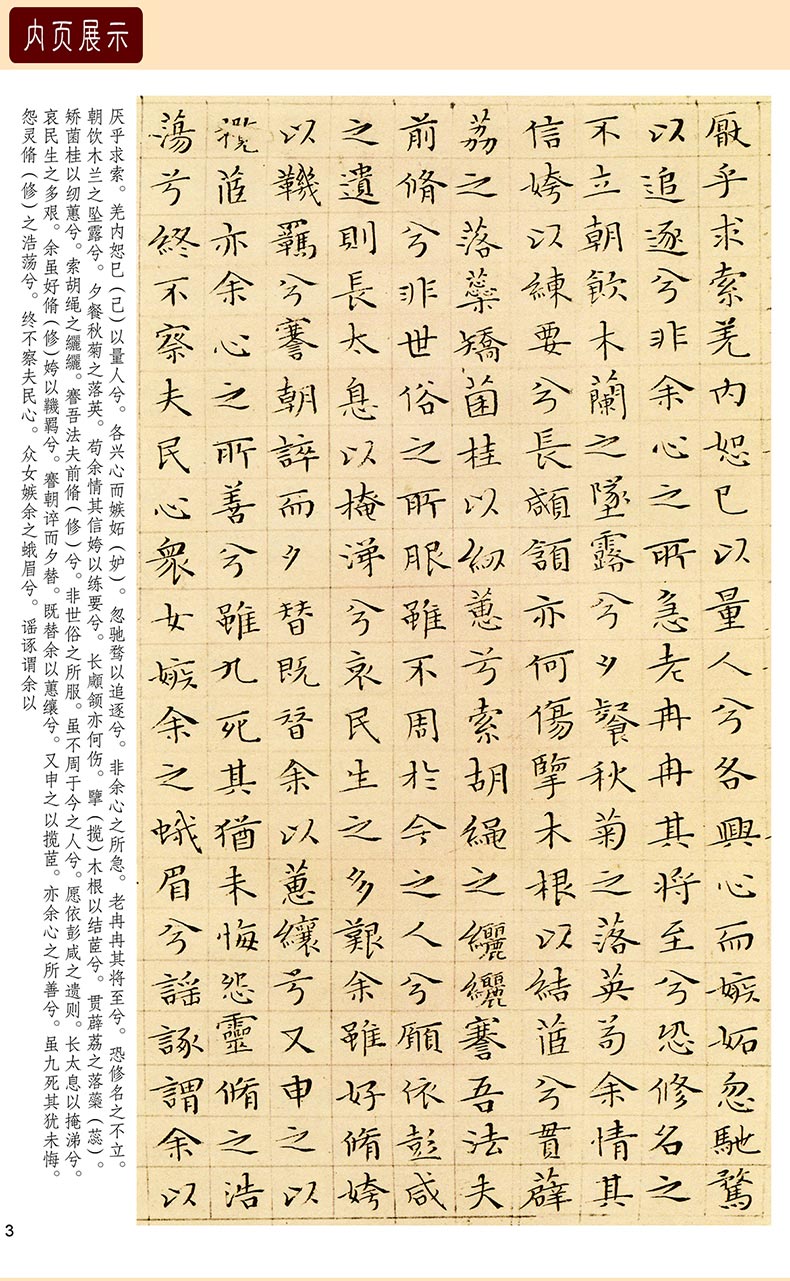 内页展示
厭乎求索羌内恕已以量人兮各興心而嫉妬忽馳騖
以追逐兮非余心之所急老冉冉其将至兮恐修名之
不立朝飲木蘭之墜露兮夕餐秋菊之落英苟余情其
信姱以練要兮長顑頷亦何傷擥木根以結茝兮貫薜
荔之落蘂矯菌桂以紉蕙兮索胡繩之纚纚謇吾法夫
前脩兮非世俗之所服雖不周於今之人兮願依彭咸
之遺則長太息以掩涕兮哀民生之多艱余雖好脩姱
以鞿羈兮謇朝誶而夕替既替余以蕙纕兮又申之以
攬茝亦余心之所善兮雖九死其猶未悔怨靈脩之浩
蕩兮終不察夫民心衆女嫉余之蛾眉兮謡諑謂余以
厌乎求索。羌内恕已（己）以量人兮。各兴心而嫉妬（妒）。忽驰骛以追逐兮。非余心之所急。老冉冉其将至兮。恐修名之不立。
朝饮木兰之坠露兮。夕餐秋菊之落英。苟余情其信姱以练要兮。长顑颔亦何伤。擥（揽）木根以结茝兮。贯薜荔之落蘂（蕊）。
矫菌桂以纫蕙兮。索胡绳之纚纚。謇吾法夫前脩（修）兮。非世俗之所服。虽不周于今之人兮。愿依彭咸之遗则。长太息以掩涕兮。
哀民生之多艰。余虽好脩（修）姱以鞿羁兮。謇朝谇而夕替。既替余以蕙纕兮。又申之以揽茝。亦余心之所善兮。虽九死其犹未悔。
怨灵脩（修）之浩荡兮。终不察夫民心。众女嫉余之蛾眉兮。谣诼谓余以
3